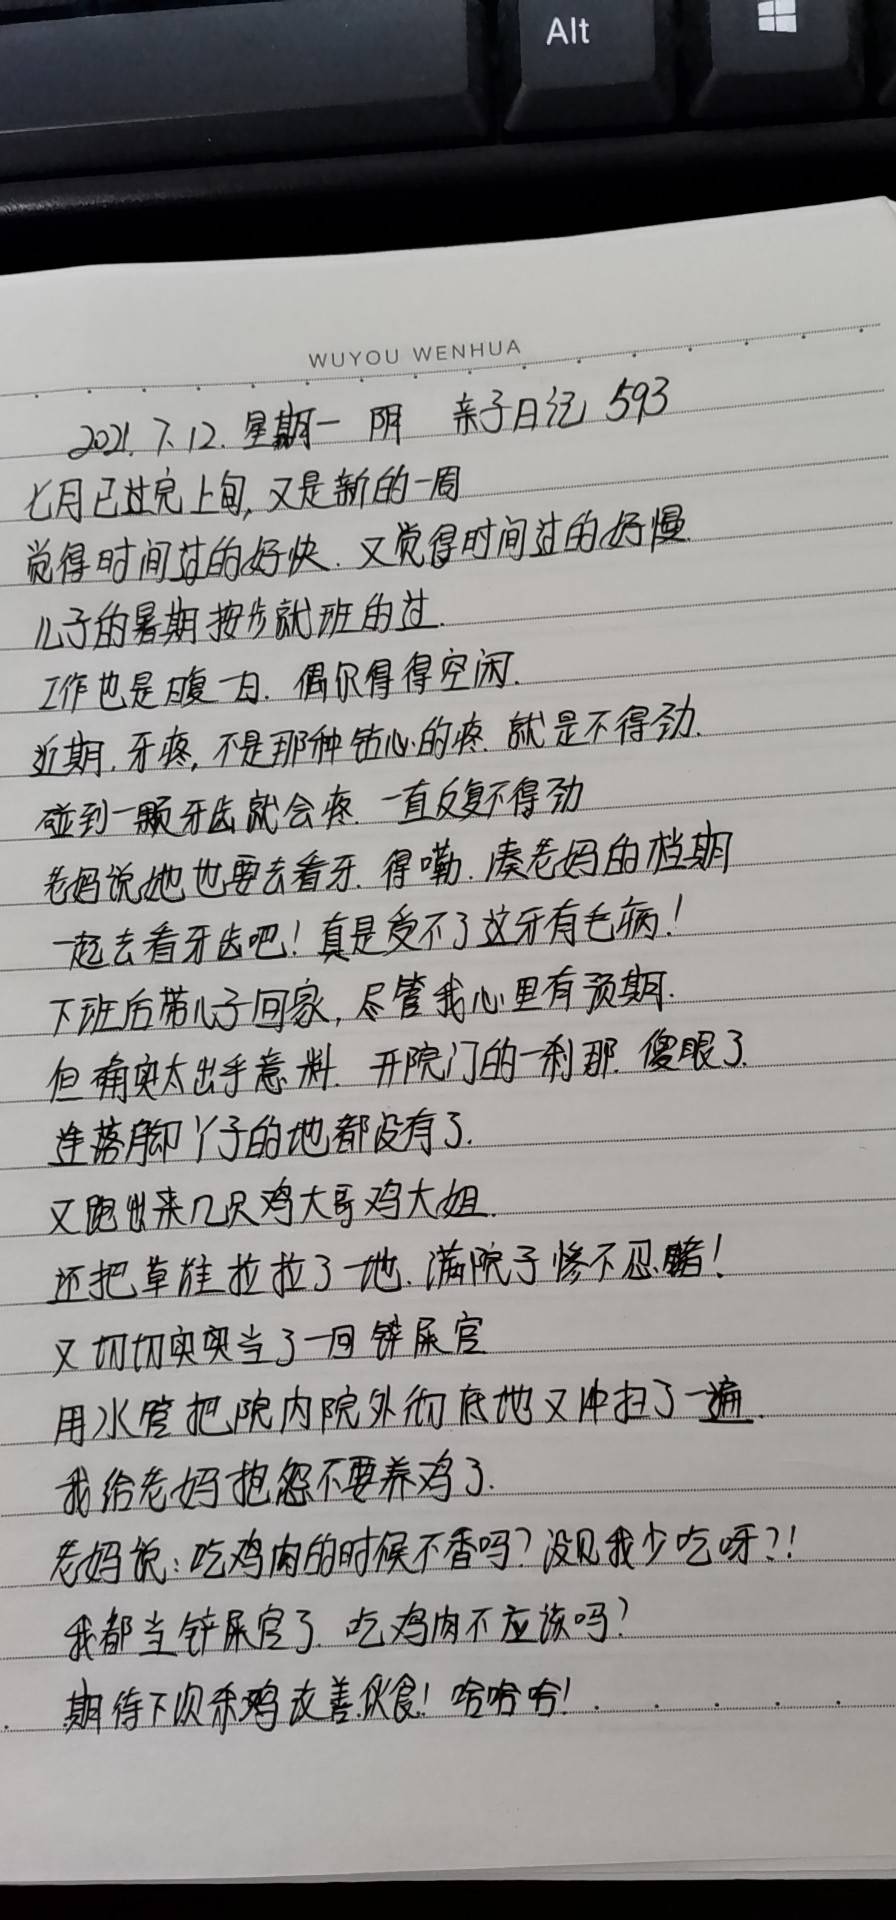 Alt
WUYOU WENHUA
2021.7.12.星期一 阴 亲子日记 593
七月已过完上旬,又是新的一周
觉得时间过的好快.又觉得时间过的好慢.
儿子的暑期按步就班的过.
工作也是日复一日.偶尔得得空闲.
近期.牙疼,不是那种钻心的疼.就是不得劲.
碰到一颗牙齿就会疼.一直反复不得劲
老妈说她也要去看牙.得嘞.凑老妈的档期
一起去看牙齿吧!真是受不了这牙有毛病!
下班后带儿子回家,尽管我心里有预期.
但确实太出乎意料.开院门的一刹那.傻眼了.
连落脚丫子的地都没有了.
又跑出来几只鸡大哥鸡大姐.
还把草堆拉拉了一地.满院子惨不忍睹!
又切切实实当了一回铲屎官
用水管把院内院外彻底地又冲扫了一遍.
我给老妈抱怨不要养鸡了.
老妈说:吃鸡肉的时候不香吗?没见我少吃呀?!
我都当铲屎官了.吃鸡肉不应该吗?
期待下次杀鸡改善伙食!哈哈哈!